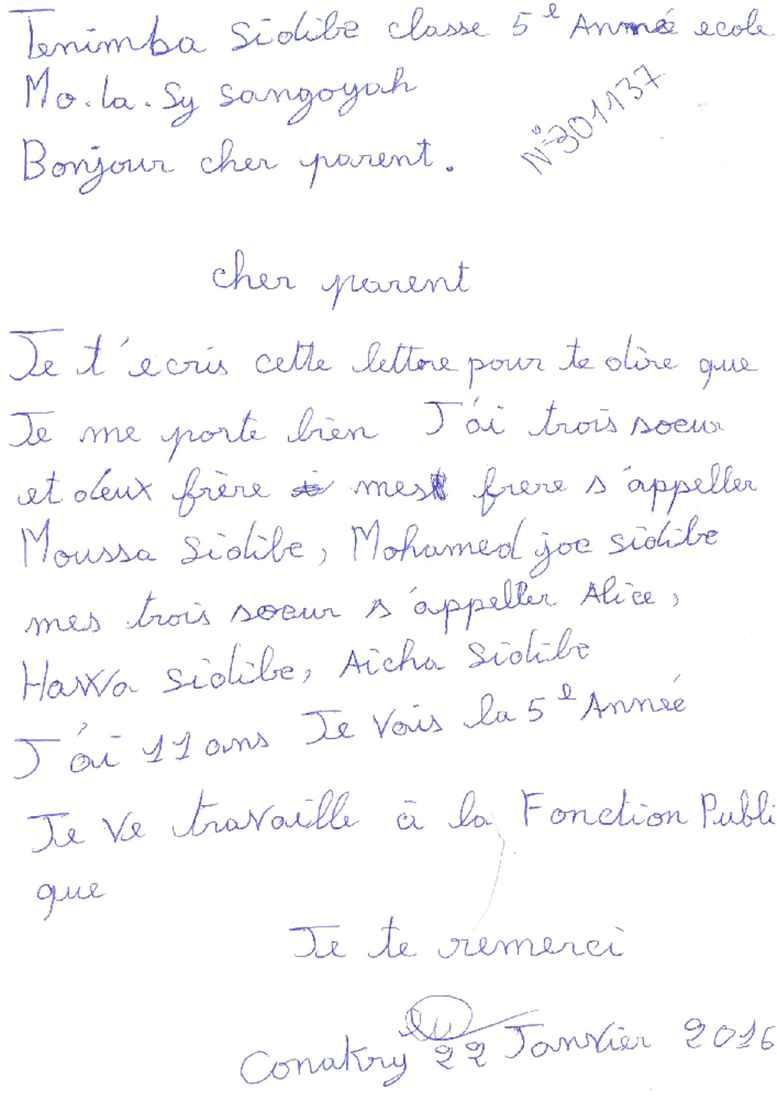 Tenimba Sidibe classe 5e Année ecole
Mo.la.Sy sangoyah
N°301137
Bonjour cher parent.
cher parent
Je t'ecris cette lettre pour te dire que
Je me porte bien J'ai trois soeur
et deux frère mes frere s'appeller
Moussa Sidibe, Mohamed joe sidibe
mes trois soeur s'appeller Alice,
Hawa Sidibe, Aicha Sidibe
J'ai 11 ans Je vais la 5e Année
Je ve travaille à la Fonction Publi
que
Je te remerci
Conakry 22 Janvier 2016